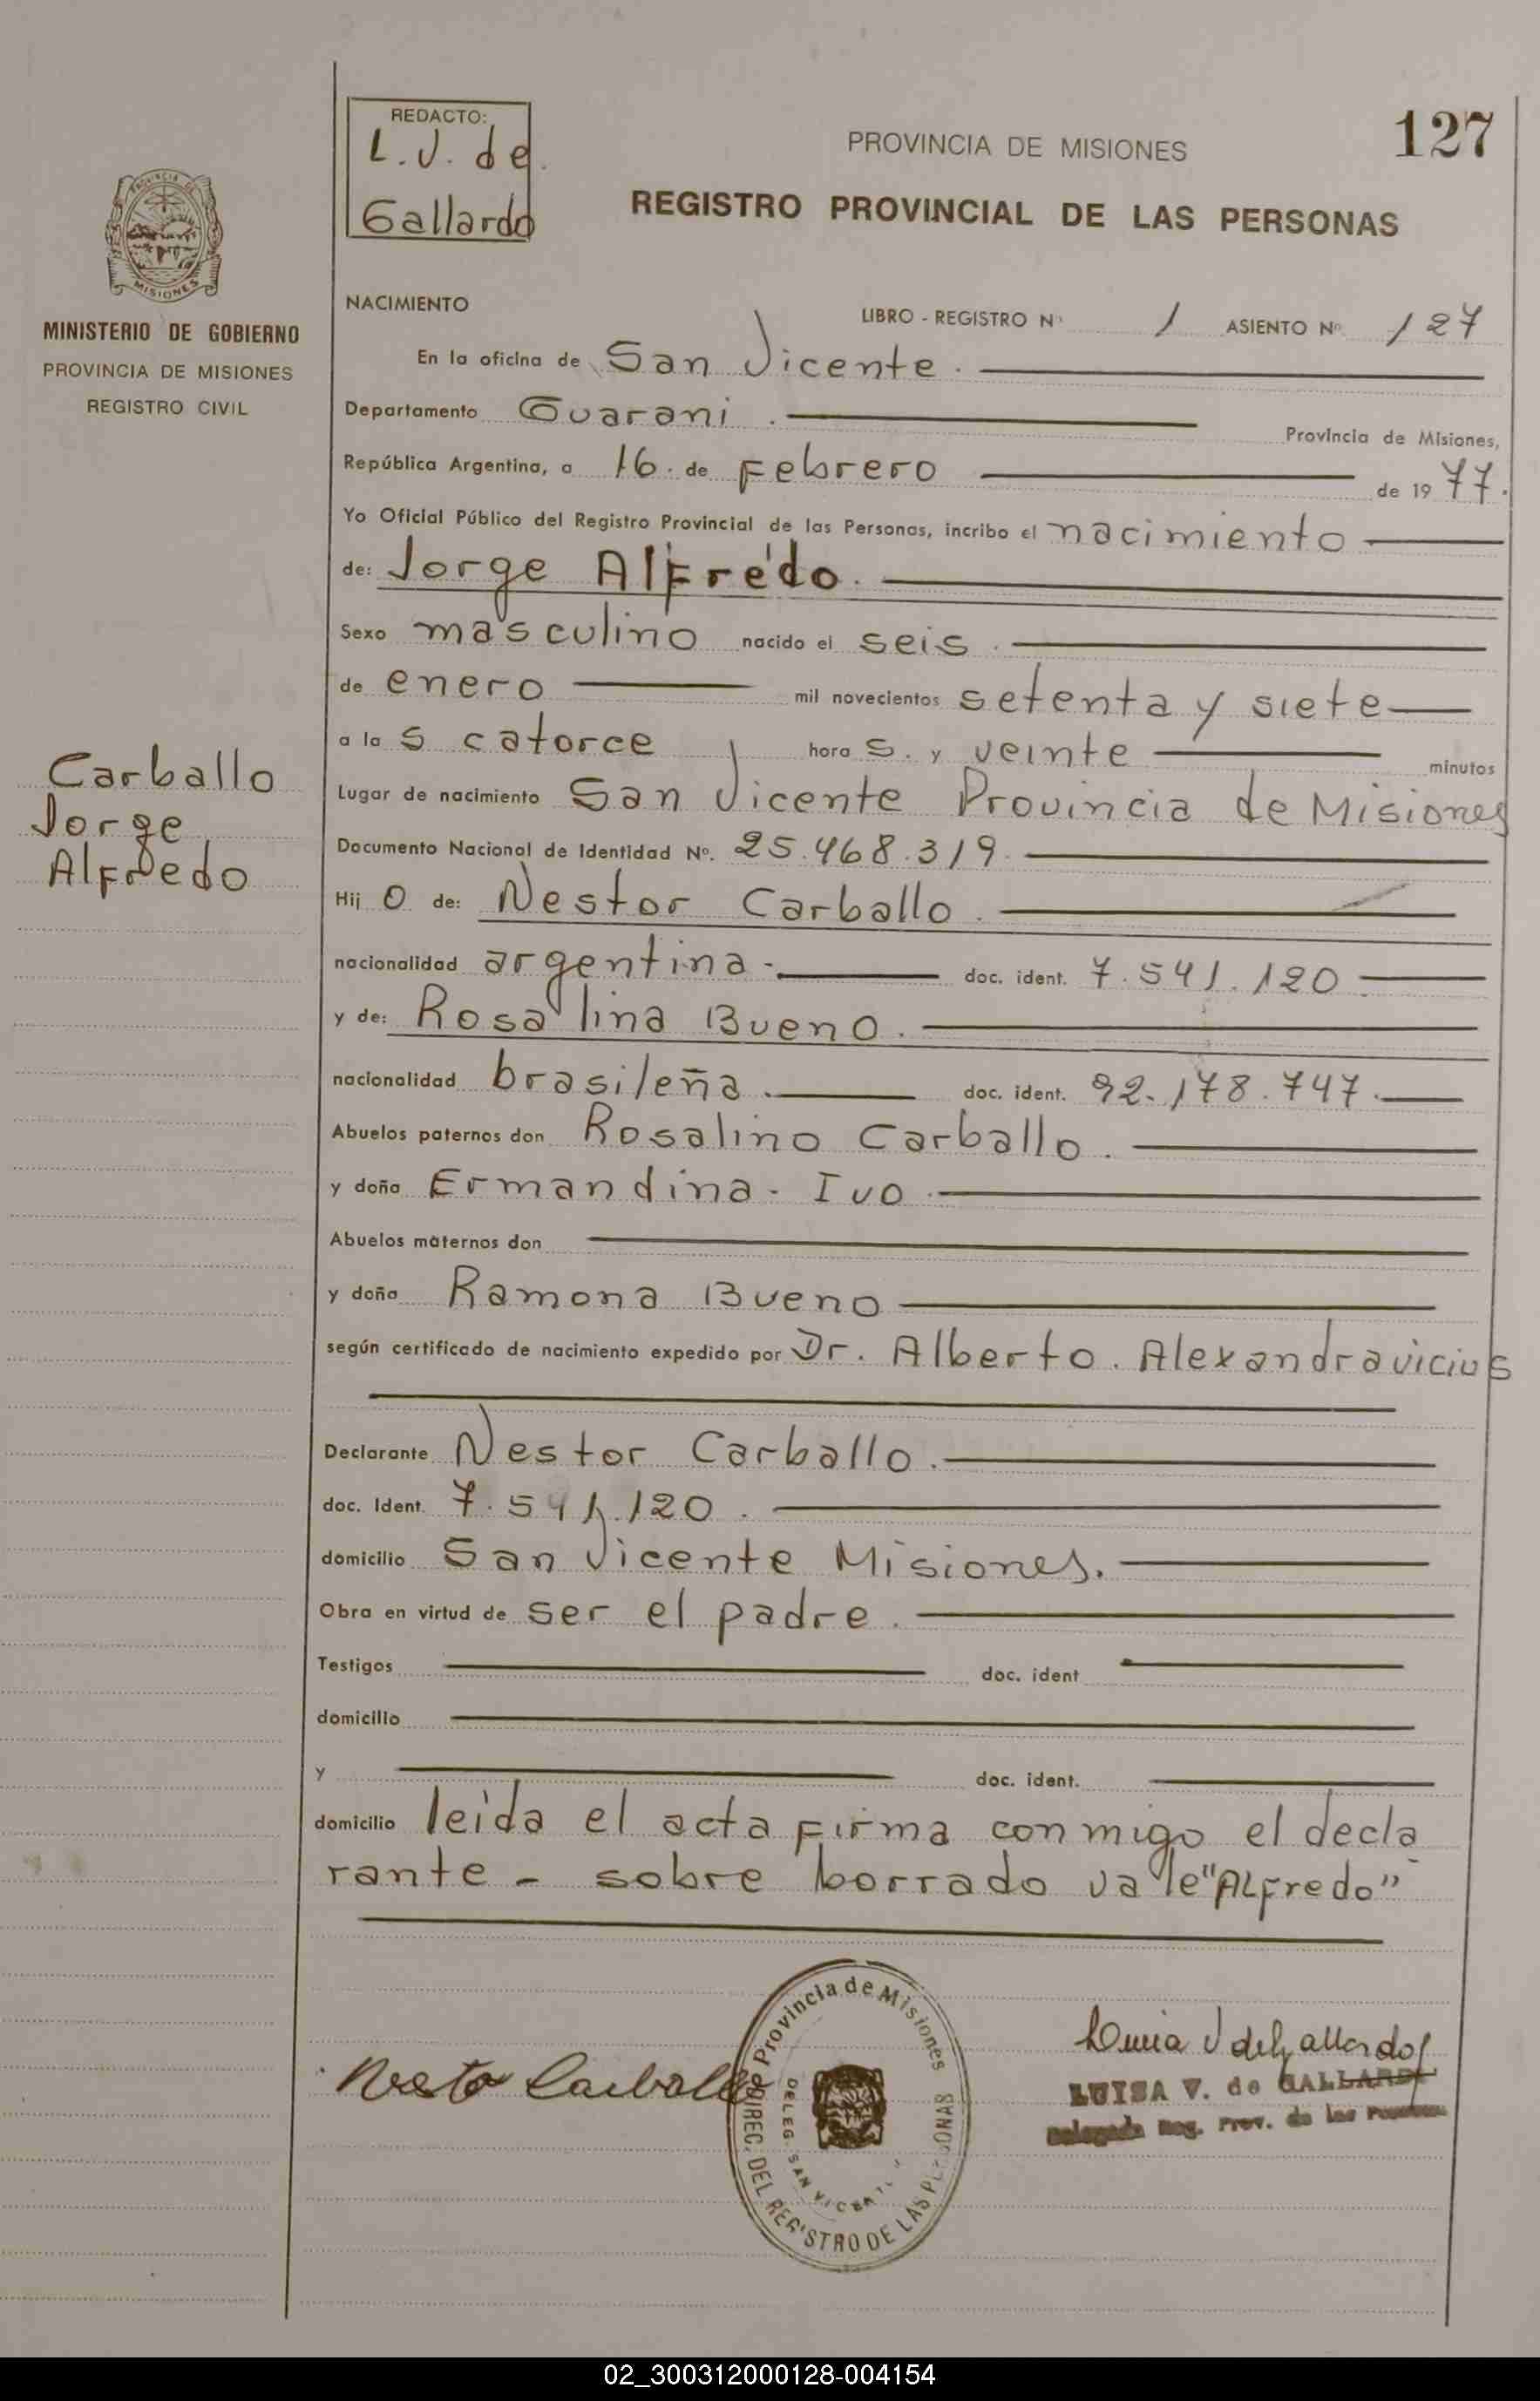 REDACTO:
L. V. de
Gallardo
PROVINCIA DE MISIONES
127
REGISTRO PROVINCIAL DE LAS PERSONAS
PROVINCIA DE
MISIONES
MINISTERIO DE GOBIERNO
PROVINCIA DE MISIONES
REGISTRO CIVIL
NACIMIENTO LIBRO - REGISTRO Nº 1 ASIENTO Nº 127
En la oficina de San Vicente.
Departamento Guarani. Provincia de Misiones,
República Argentina, a 16. de Febrero de 1977.
Yo Oficial Público del Registro Provincial de las Personas, incribo el nacimiento
de: Jorge Alfredo.
Sexo masculino nacido el seis.
de enero mil novecientos setenta y siete
a las catorce horas. y veinte minutos
Carballo
Jorge
Alfredo
Lugar de nacimiento San Vicente Provincia de Misiones
Documento Nacional de Identidad Nº. 25.468.319.
Hijo de: Nestor Carballo.
nacionalidad argentina.- doc. ident. 7.541.120
y de: Rosalina Bueno.
nacionalidad brasileña. doc. ident. 92.178.747.
Abuelos paternos don Rosalino Carballo.
y doña Ermandina. Ivo.
Abuelos maternos don
y doña Ramona Bueno
según certificado de nacimiento expedido por Dr. Alberto. Alexandravicius
Declarante Nestor Carballo.
doc. Ident. 7.541.120.
domicilio San Vicente Misiones.
Obra en virtud de ser el padre.
Testigos doc. ident
domicilio
y doc. ident.
domicilio leida el acta Firma conmigo el decla
rante - sobre borrado vale "ALFredo"
Nestor Carballo
Provincia de Misiones
DIREC. DEL REGISTRO DE LAS PERSONAS
DELEG. SAN VICENTE
Luisa V de Gallardo
LUISA V. de GALLARDO
Delegada Reg. Prov. de las Personas
02_300312000128-004154